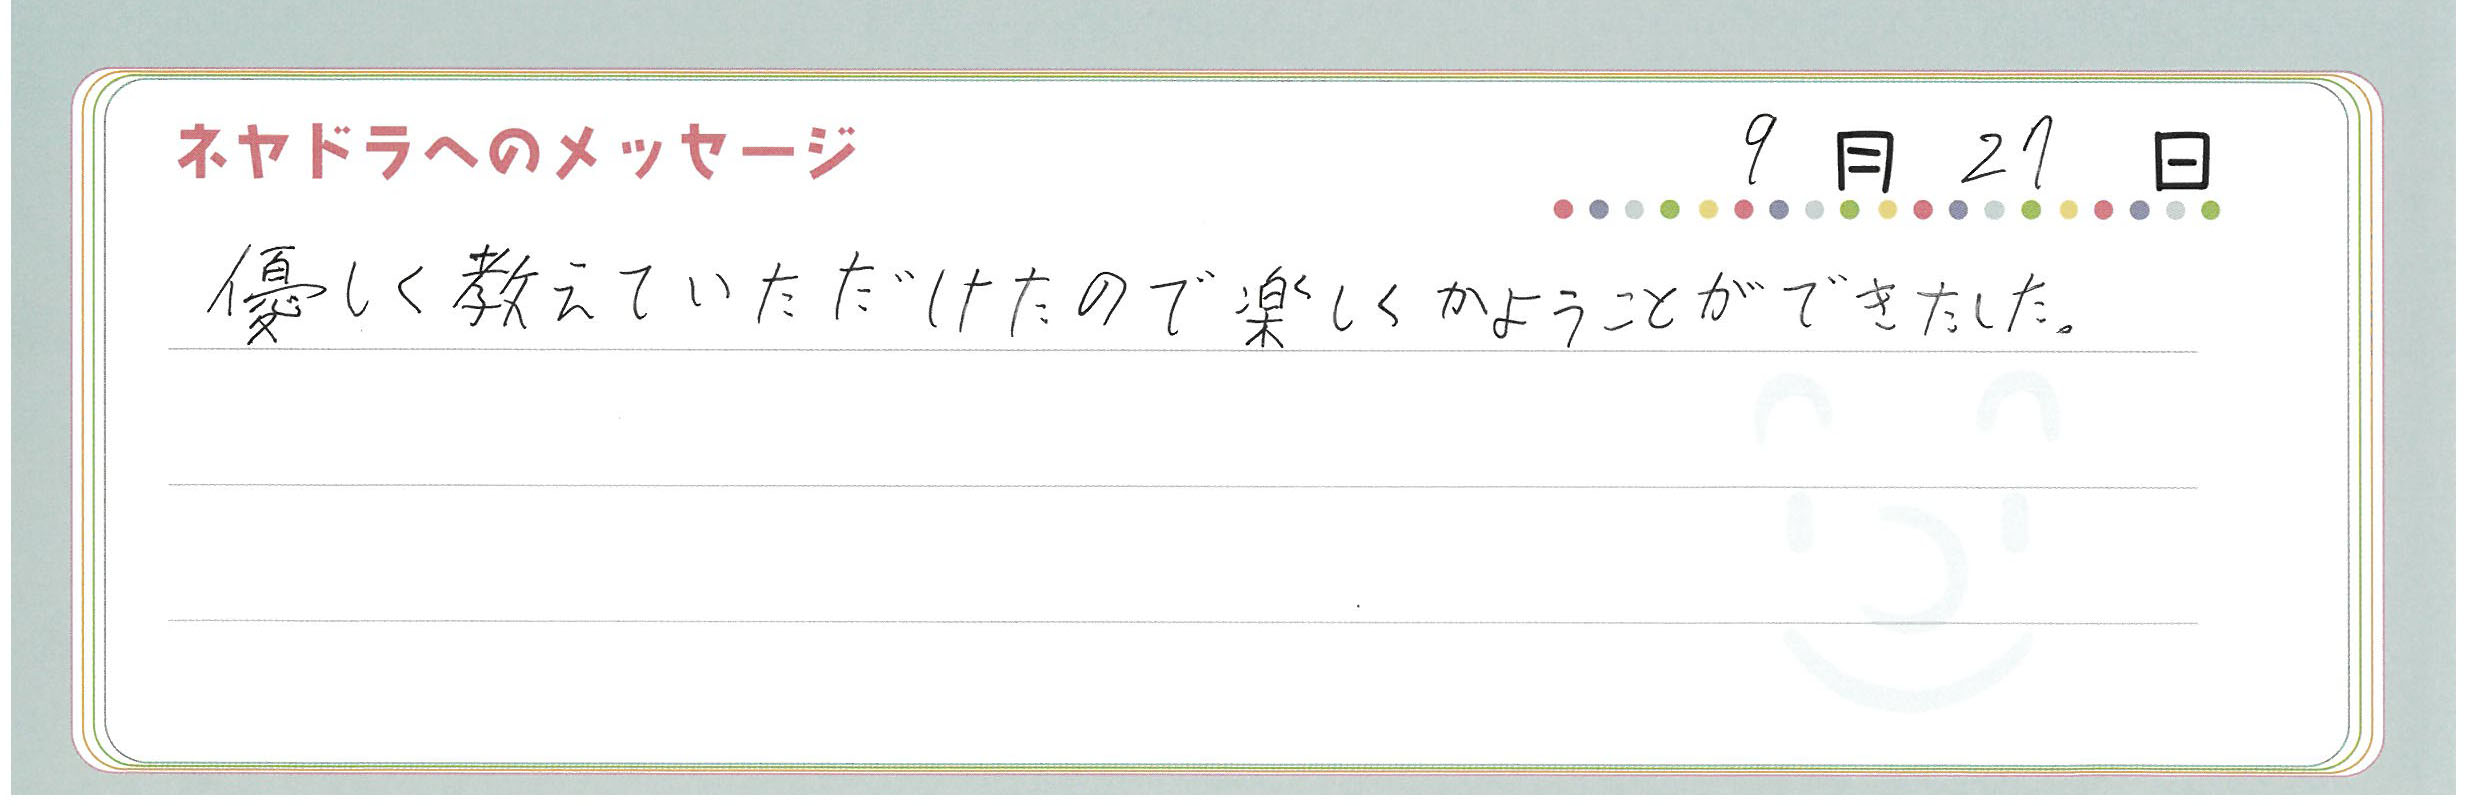 ネヤドラへのメッセージ
9月27日
優しく教えていただけたので楽しくかようことができたした。